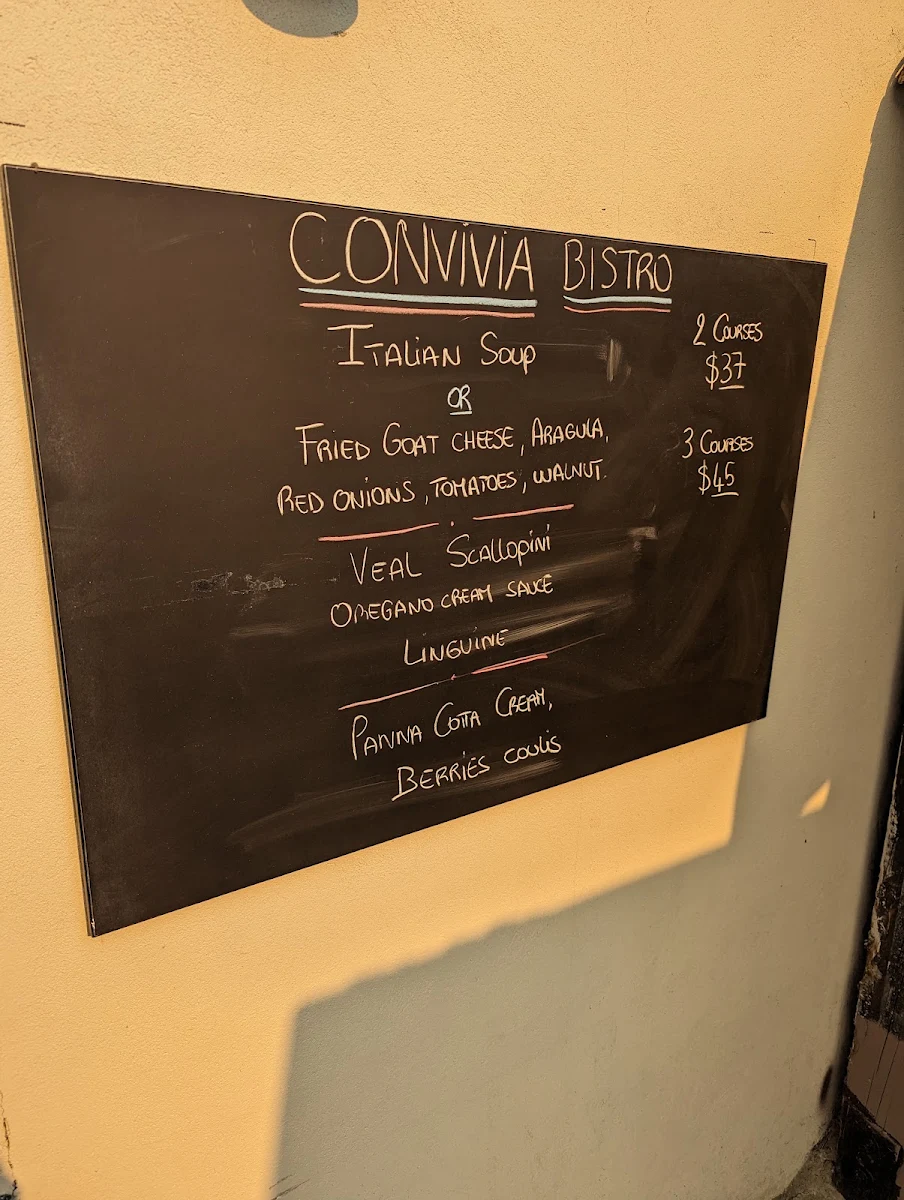 CONVIVIA BISTRO
ITALIAN SOUP
OR
FRIED GOAT CHEESE, ARAGULA,
RED ONIONS, TOMATOES, WALNUT.
VEAL SCALLOPINI
OREGANO CREAM SAUCE
LINGUINE
PANNA COTTA CREAM,
BERRIES COULIS
2 COURSES
$37
3 COURSES
$45